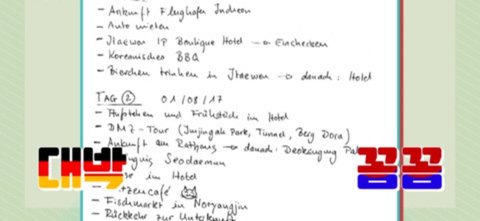 - Ankunft Flughafen Incheon
- Auto mieten
- Itaewon IP Boutique Hotel → Einchecken
- Koreanisches BBQ
- Bierchen trinken in Itaewon → danach: Hotel
TAG ② 01/08/17
- Aufstehen und Frühstück im Hotel
- DMZ-Tour (Imjingak Park, Tunnel, Berg Dora)
- Ankunft am Rathaus → danach: Deoksugung Pal
Seodaemun
대박 꼼꼼
im Hotel
tzencafé
- Fischmarkt in Noryangjin
- Rückkehr zur Unterkunft